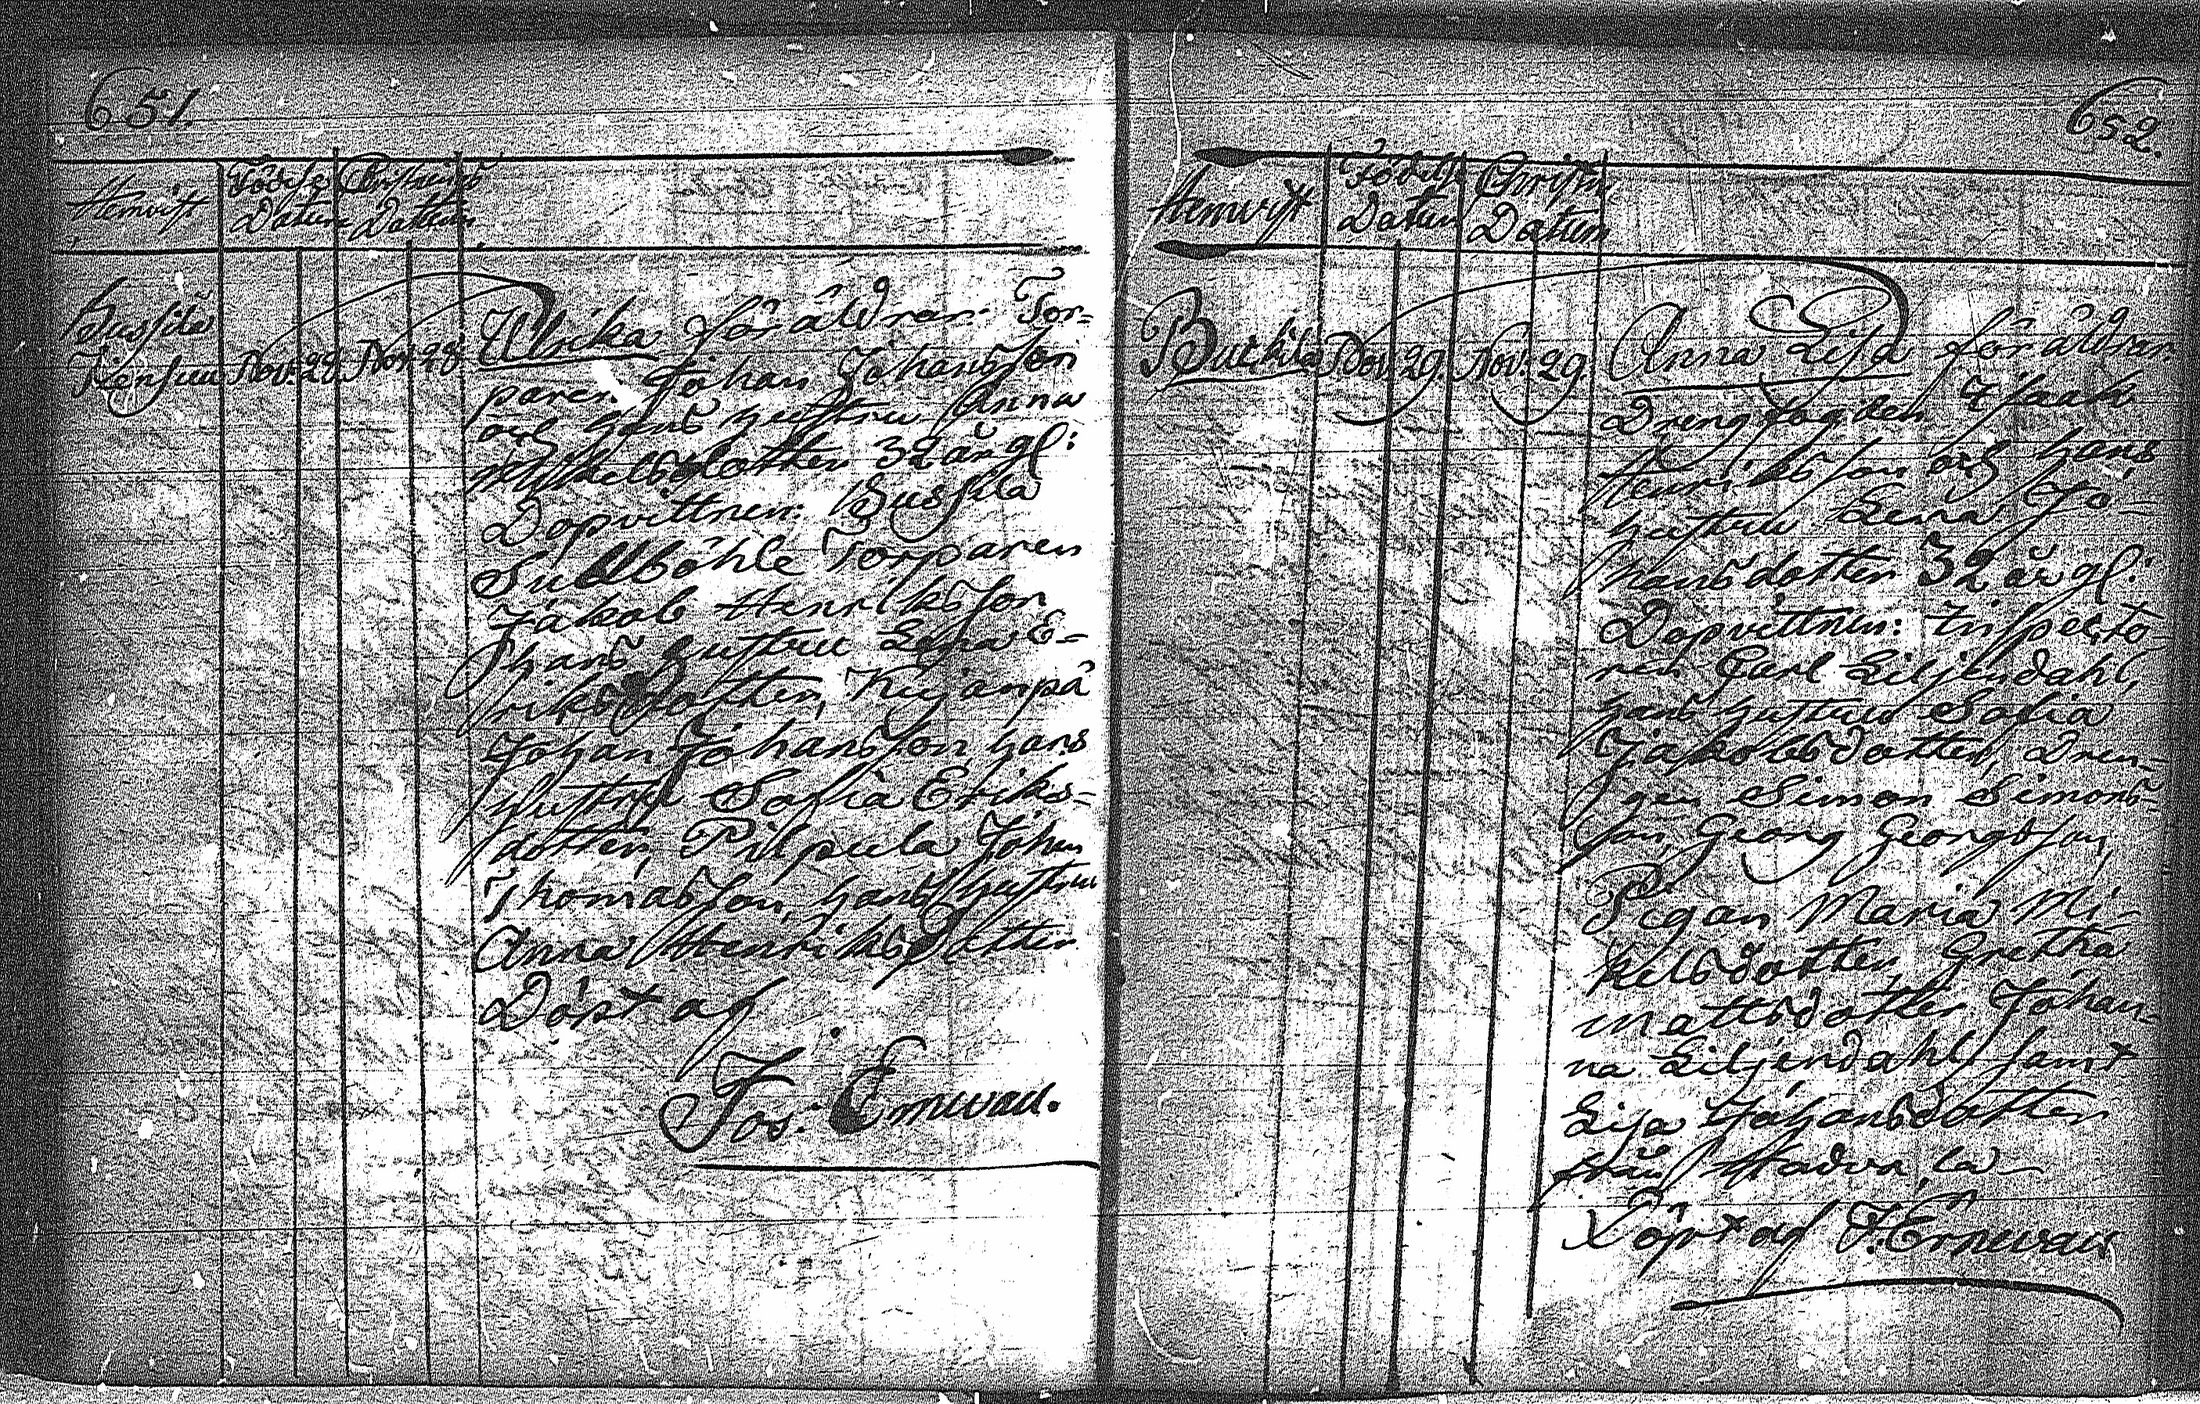 651.
Hemvist
Födelse Christn:
Datum Datum
Sussila
Nov: 28. Nov: 28
Ulrika föräldrar: Tor-
paren Johan Johansson
och hans hustru Anna
Mikelsdotter 32 år gl:
Dopvittnen: Sussila
Skallböhle Torparen
Jakob Henriksson
hans hustru Lena E-
riksdotter, Nyjänpä
Johan Johansson, hans
hustru Sofia Eriks-
dotter, Pilpula Johan
Thomasson, hans hustru
Anna Henriksdotter
Döpt af
Jos: Emewau.
652.
Hemvist
Födelse Christn:
Datum Datum
Buckila Nov. 29. Nov: 29
Anna Lisa föräldrar
Drengfogden Isaak
Henriksson och hans
hustru Lena Jo-
hansdotter 32 år gl:
Dopvittnen: Inspecto-
ren Carl Liljendahl,
hans hustru Sofia
Jakobsdotter, Dren-
gen Simon Simons-
son, Georg Georgsson,
Pigan Maria Mi-
kelsdotter, Gretha
Mattsdotter Johan-
na Liljendahl samt
Lisa Johansdotter
från
Döpt af J: